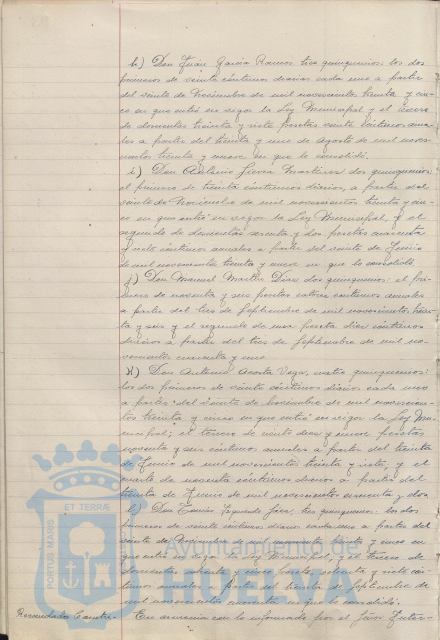 h.) Don Juan García Ramos tres quinquenios: los dos
primeros de veinte céntimos diarios cada uno a partir
del veinte de Noviembre de mil novecientos treinta y cin-
co en que entró en vigor la Ley Municipal y el tercero
de doscientas treinta y siete pesetas veinte céntimos anua-
les a partir del treinta y uno de Agosto de mil nove-
cientos treinta y nueve en que lo consolidó.
i.) Don dos quinquenios:
el primero de treinta céntimos diarios, a partir del
veinte de Noviembre de mil novecientos treinta y cin-
co en que entró en vigor la Ley Municipal, y el
segundo de doscientas setenta y dos pesetas cuarenta
y siete céntimos anuales a partir del veinte de Junio
de mil novecientos treinta y nueve en que lo consolidó.
j.) Don Manuel Martín Díaz dos quinquenios: el pri-
mero de noventa y seis pesetas catorce céntimos anuales
a partir del tres de Septiembre de mil novecientos trein-
ta y seis y el segundo de una peseta diez céntimos
diarios a partir del tres de Septiembre de mil no-
vecientos cuarenta y uno.
K.) Don Antonio Acosta Vega, cuatro quinquenios:
los dos primeros de veinte céntimos diarios cada uno
a partir del veinte de Noviembre de mil novecien-
tos treinta y cinco en que entró en vigor la Ley Mu-
nicipal; el tercero de ciento diez y nueve pesetas
noventa y seis céntimos anuales a partir del treinta
de Junio de mil novecientos treinta y siete, y el
cuarto de noventa céntimos diarios a partir del
treinta de Junio de mil novecientos cuarenta y dos.
l.) Don tres quinquenios: los dos
primeros de veinte céntimos diarios cada uno a partir del
veinte de Noviembre de mil novecientos treinta y cinco en
que entró en vigor la Ley Municipal, y el tercero de
doscientas y siete cén-
timos anuales a partir del treinta de Septiembre de
mil novecientos cuarenta en que lo consolidó.
En armonía con lo informado por el Sr. Inter-
PORTUS MARIS ET TERRÆ
Ayuntamiento de
HUELVA